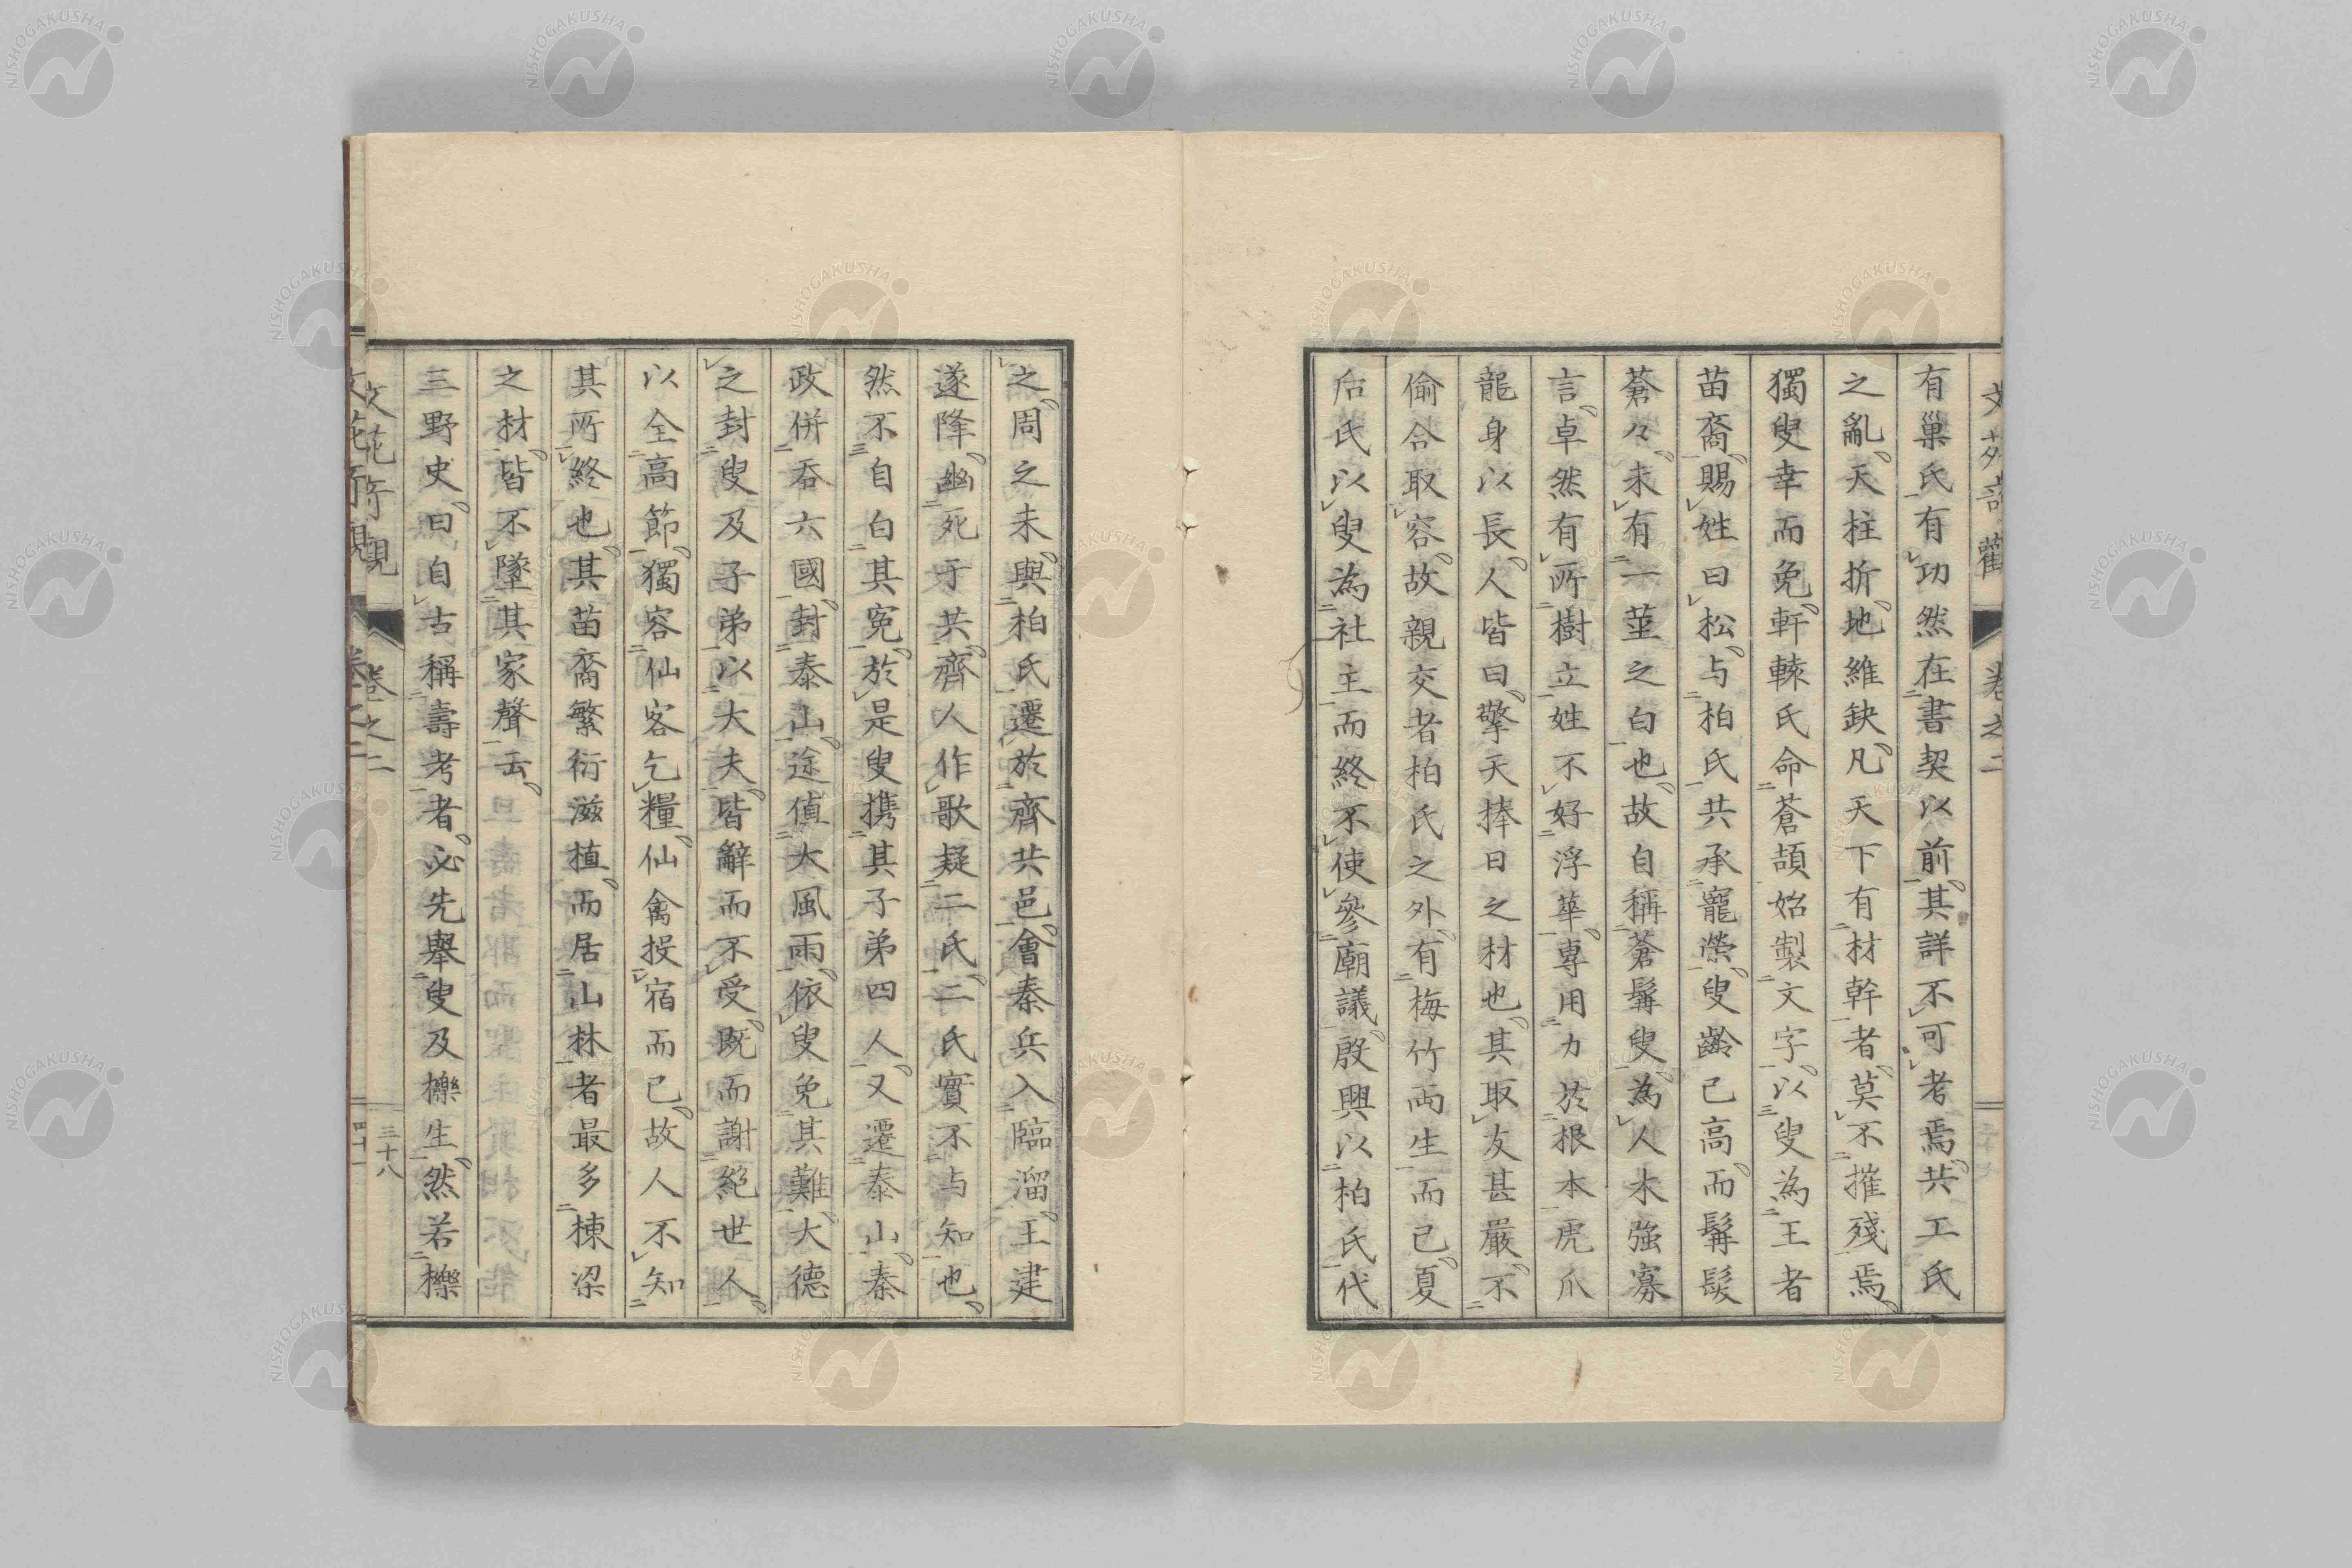 有巢氏有功然在書契以前其詳不可考焉共工氏
之亂天柱折地維缺凡天下有材幹者莫不摧殘焉
獨叟幸而免軒轅氏命蒼頡始製文字以叟為王者
苗裔賜姓曰松与柏氏共承寵榮叟齡已高而髯髮
蒼々未有一莖之白也故自稱蒼髯叟為人木強寡
言卓然有所樹立姓不好浮華專用力於根本虎爪
龍身以長人皆曰擎天捧日之材也其取友甚嚴不
偷合取容故親交者柏氏之外有梅竹両生而已夏
后氏以叟為社主而終不使參廟議殷興以柏氏代
之周之未與柏氏遷於齊共邑會秦兵入臨溜王建
遂降幽死于共齊人作歌疑二氏二氏實不与知也
然不自白其冤於是叟携其子弟四人又遷泰山秦
政併吞六國封泰山途値大風雨依叟免其難大德
之封叟及子弟以大夫皆辭而不受既而謝絕世人
以全高節獨容仙客乞糧仙禽投宿而已故人不知
其所終也其苗裔繁衍滋植而居山林者最多棟梁
之材皆不墜其家聲云
三野史曰自古稱壽考者必先舉叟及櫟生然若櫟
卷之二
三十八
NISHOGAKUSHA